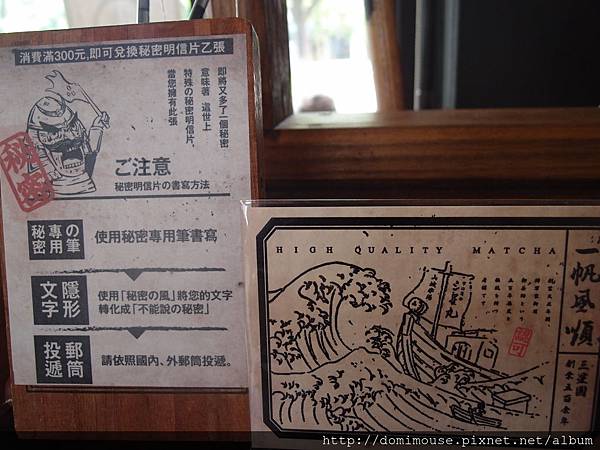 消費滿300元,即可兌換秘密明信片乙張
當您擁有此張
特殊の秘密明信片,
意味著 這世上
即將又多了一個秘密
秘密
ご注意
秘密明信片の書寫方法
秘密專用の筆
使用秘密專用筆書寫
隱形文字
使用「秘密の風」將您的文字
轉化成「不能說の秘密」
郵筒投遞
請依照國內、外郵筒投遞。
HIGH QUALITY MATCHA
一帆風順
三星園
創業五百余年
認可
http://domimouse.pixnet.net/album